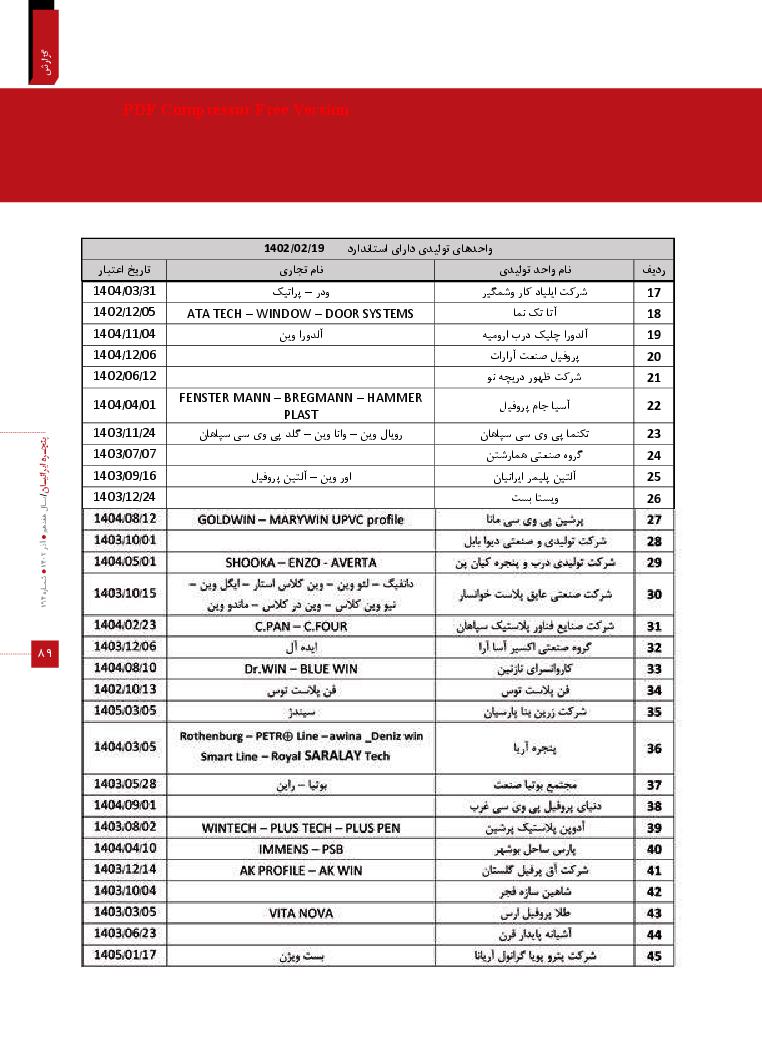 گزارش
PDF Compressor Free Version
واحدهای تولیدی دارای استاندارد 1402/02/19
ردیف نام واحد تولیدی نام تجاری تاریخ اعتبار
17 شرکت ایلیاد کار وشمگیر ودر – پراتیک 1404/03/31
18 آتا تک نما ATA TECH – WINDOW – DOOR SYSTEMS 1402/12/05
19 آلدورا چلیک درب ارومیه آلدورا وین 1404/11/04
20 پروفیل صنعت آرارات 1404/12/06
21 شرکت ظهور دریچه نو 1402/06/12
22 آسیا جام پروفیل FENSTER MANN – BREGMANN – HAMMER
PLAST 1404/04/01
23 تکنما پی وی سی سپاهان رویال وین – وانا وین – گلد پی وی سی سپاهان 1403/11/24
24 گروه صنعتی همارشتن 1403/07/07
25 آلتین پلیمر ایرانیان اور وین – آلتین پروفیل 1403/09/16
26 ویستا بست 1403/12/24
27 پرشین پی وی سی مانا GOLDWIN – MARYWIN UPVC profile 1404/08/12
28 شرکت تولیدی و صنعتی دیوا بابل 1403/10/01
29 شرکت تولیدی درب و پنجره کیان پن SHOOKA – ENZO - AVERTA 1404/05/01
30 شرکت صنعتی عایق پلاست خوانسار دانفیگ – لئو وین – وین کلاس استار – ایگل وین –
نیو وین کلاس – وین در کلاس – ماندو وین 1403/10/15
31 شرکت صنایع فناور پلاستیک سپاهان C.PAN – C.FOUR 1404/02/23
32 گروه صنعتی اکسیر آسا آرا ایده آل 1403/12/06
33 کاروانسرای نازنین Dr.WIN – BLUE WIN 1404/08/10
34 فن پلاست توس فن پلاست توس 1402/10/13
35 شرکت زرین بنا پارسیان سیندژ 1405/03/05
36 پنجره آریا Rothenburg – PETRO Line – awina _Deniz win
Smart Line – Royal SARALAY Tech 1404/03/05
37 مجتمع بوتیا صنعت بوتیا – راین 1403/05/28
38 دنیای پروفیل پی وی سی غرب 1404/09/01
39 آدوپن پلاستیک پرشین WINTECH – PLUS TECH – PLUS PEN 1403/08/02
40 پارس ساحل بوشهر IMMENS – PSB 1404/04/10
41 شرکت آق پرفیل گلستان AK PROFILE – AK WIN 1403/12/14
42 شاهین سازه فجر 1403/10/04
43 طلا پروفیل ارس VITA NOVA 1403/03/05
44 آشیانه پایدار قرن 1403/06/23
45 شرکت پترو پویا گرانول آریانا بست ویژن 1405/01/17
پنجره ایرانیان / سال هفدهم ● آذر ۱۴۰۲ ●
۸۹